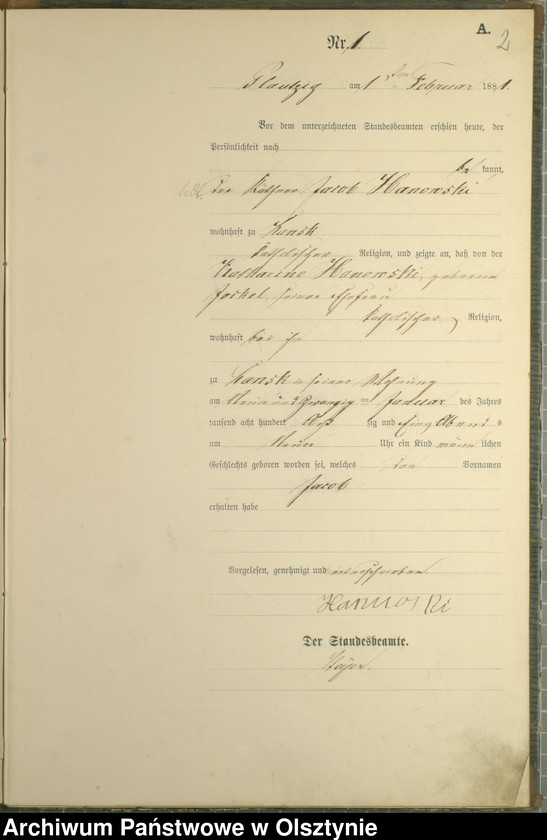 A.
2
Nr. 1
Plautzig am 1ten Februar 1881.
Vor dem unterzeichneten Standesbeamten erschien heute, der
Persönlichkeit nach
be kannt,
der Käthner Jacob Hanowski
wohnhaft zu Lansk
katholischer Religion, und zeigte an, daß von der
Katharine Hanowski, geborene
Jockel, seiner Ehefrau
katholischer Religion,
wohnhaft bei ihm
zu Lansk in seiner Wohnung
am Neun und zwanzig ten Januar des Jahres
tausend acht hundert Acht zig und Eins Abend s
um Neun Uhr ein Kind männ lichen
Geschlechts geboren worden sei, welches den Vornamen
Jacob
erhalten habe
Vorgelesen, genehmigt und unterschrieben
Hannoski
Der Standesbeamte.
Archiwum Państwowe w Olsztynie